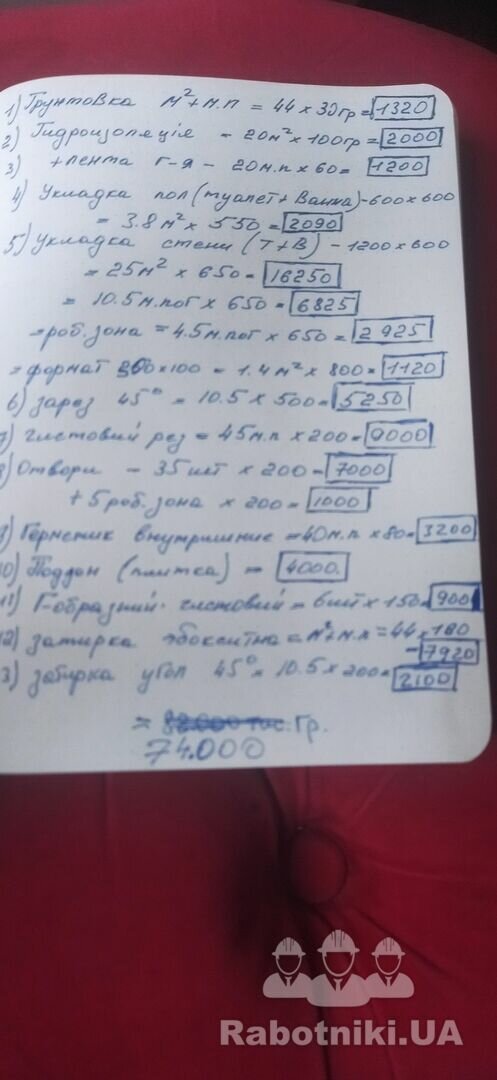 1) Грунтовка м²+м.п = 44 x 30гр = 1320
2) Гідроізоляція - 20м² x 100гр = 2000
3) + лента г-я - 20м.п x 60 = 1200
4) Укладка пол (туалет + Ванна) - 600 x 600
= 3.8м² x 550 = 2090
5) Укладка стени (Т+В) - 1200 x 600
= 25м² x 650 = 16250
= 10.5м.пог x 650 = 6825
роб.зона = 4.5м.пог x 650 = 2925
= формат 300x100 = 1.4м² x 800 = 1120
6) зарез 45° = 10.5 x 500 = 5250
7) чистовий рез = 45м.п x 200 = 9000
8) Отвори - 35шт x 200 = 7000
+ 5 роб.зона x 200 = 1000
9) Герметик внутришние = 40м.п x 80 = 3200
10) Поддон (плитка) = 4000
11) Г-образний чистовий = 6шт x 150 = 900
12) затирка = м²+м.п = 44 x 180
7920
13) затирка угол 45° = 10.5 x 200 = 2100
= гр.
74.000
Rabotniki.UA